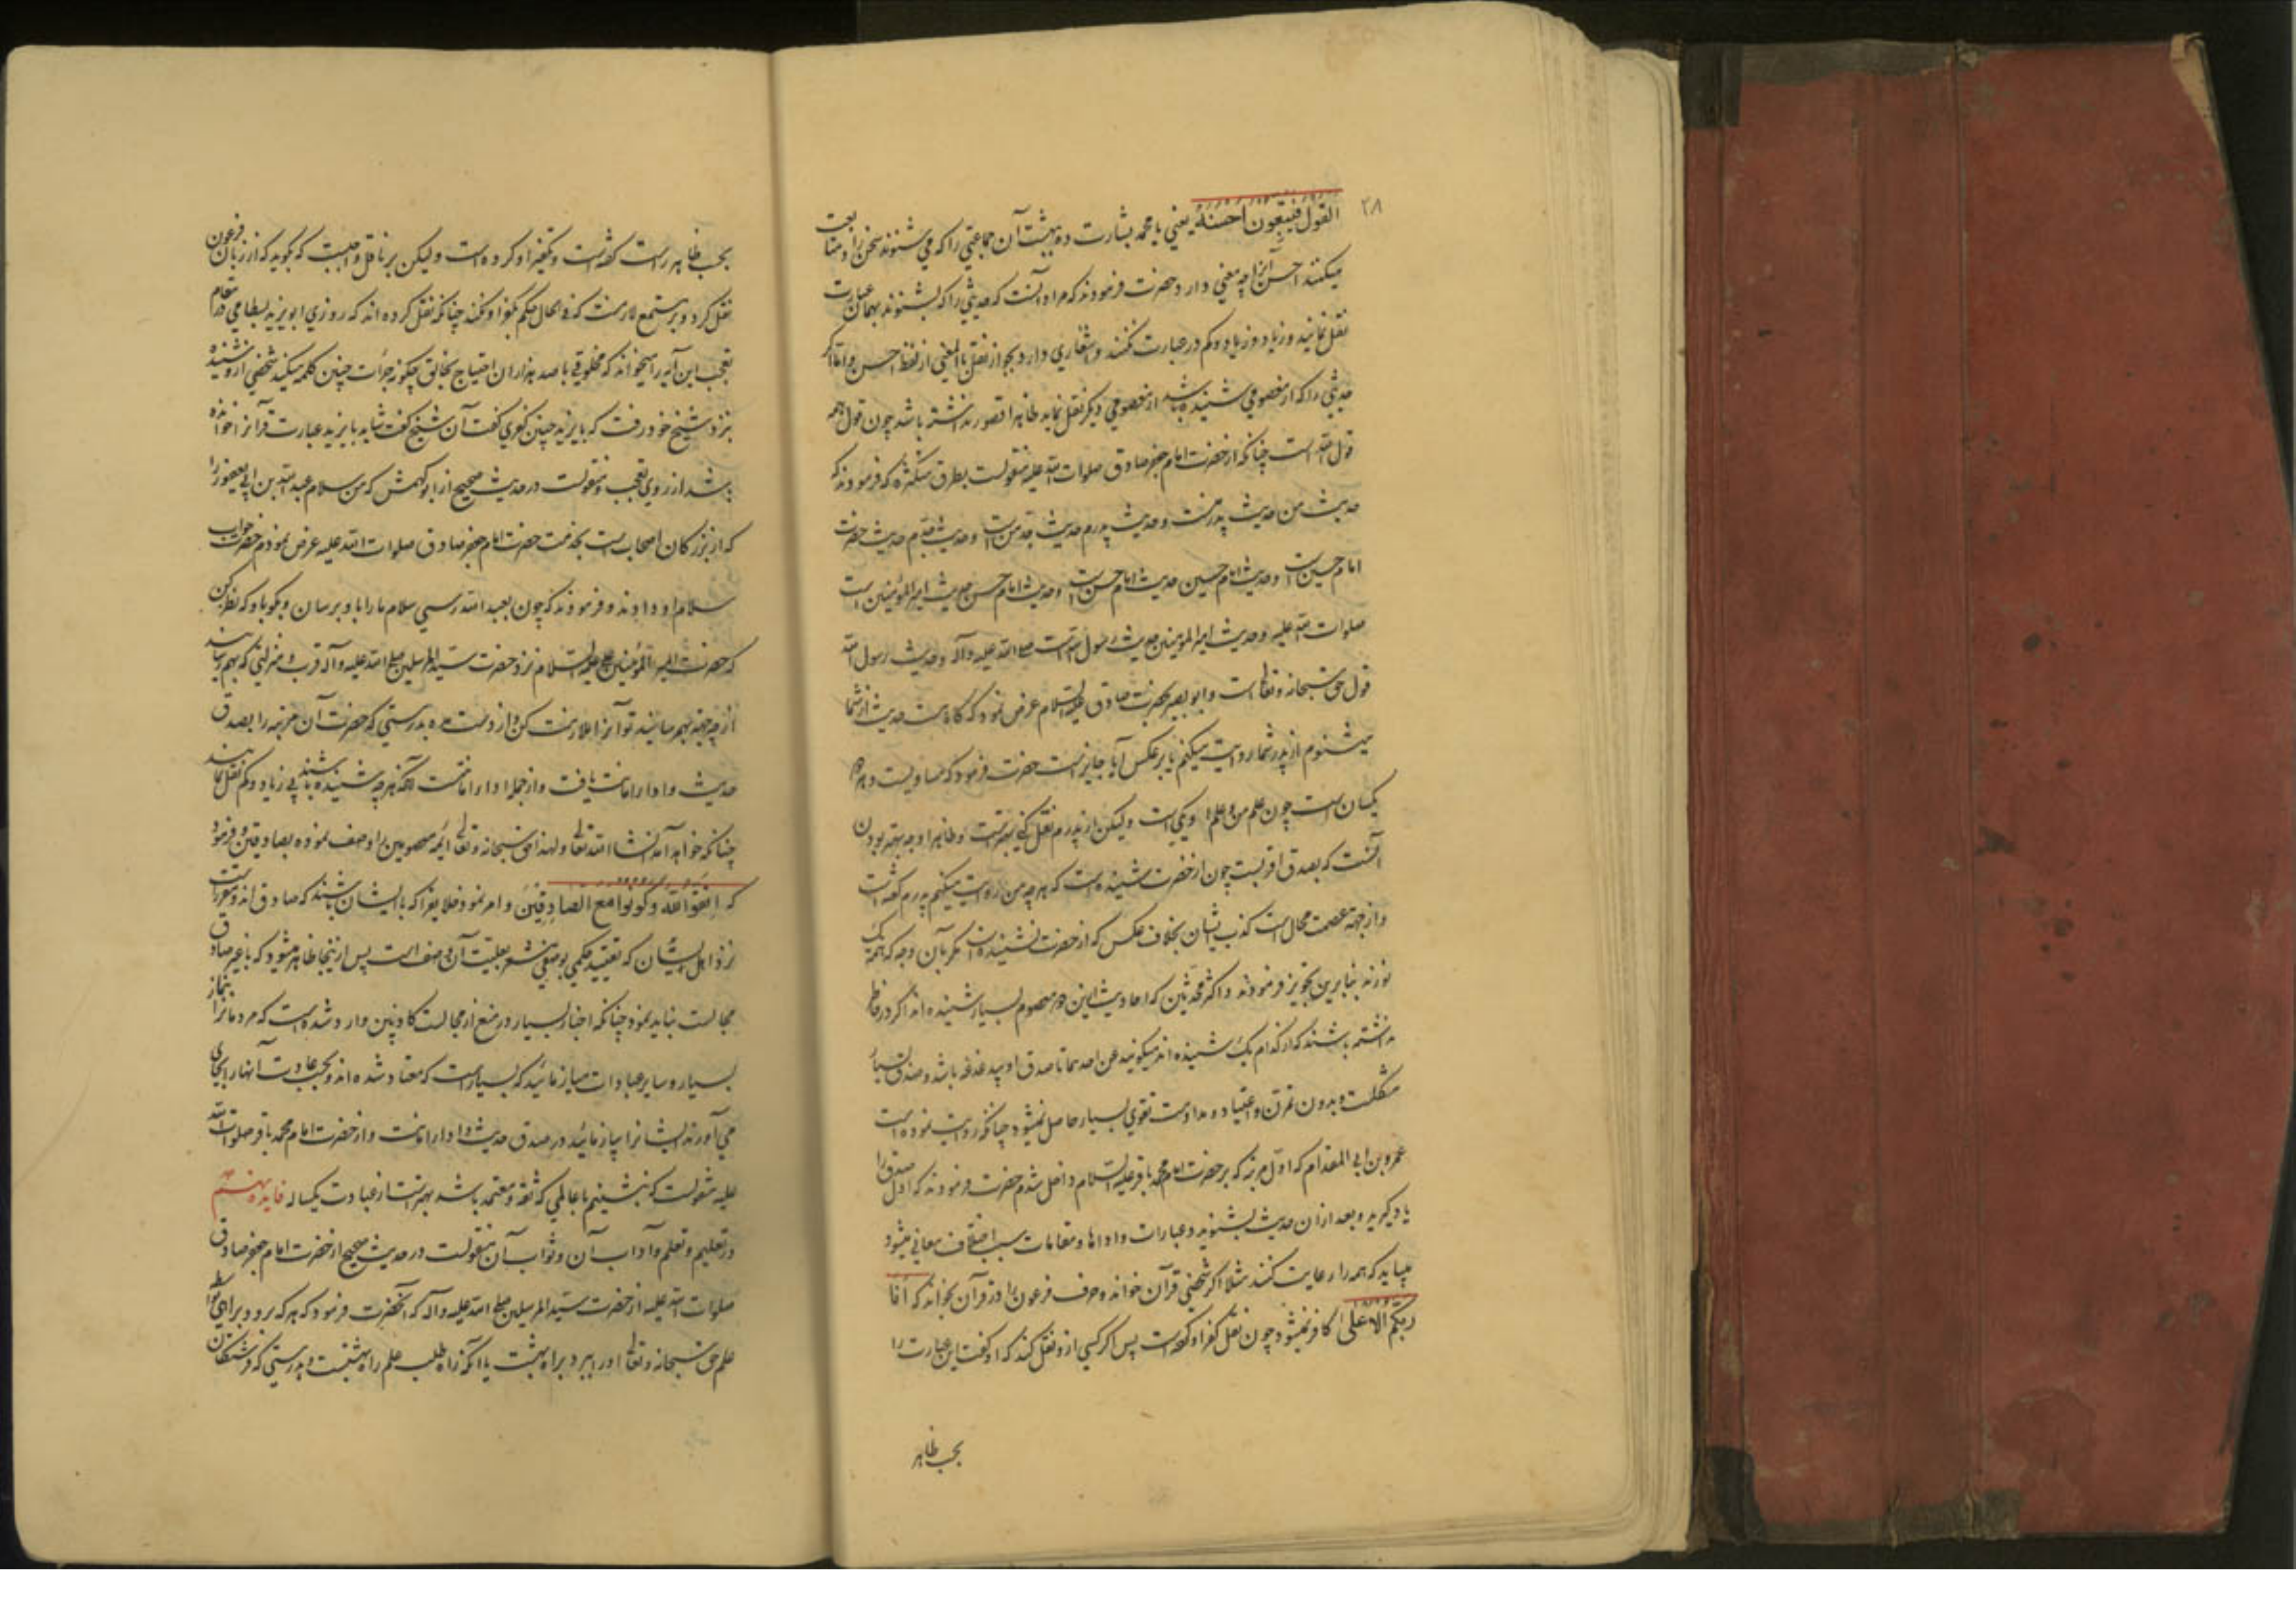 ۲۸
القول فیتبعون احسنه یعنی یا محمد بشارت ده ببهشت آن جماعتی را که می شنوند سخن را و متابعت
میکنند احسن آنرا چه معنی دارد حضرت فرمودند که مراد آنست که حدیثی را که بشنوند بهمان عبارت
نقل نمایند و زیاد و کم در عبارت نکنند و اشعاری دارد بجواز نقل بالمعنی از لفظ احسن و اما اگر
حدیثی را که از معصومی شنیده باشد از معصومی دیگر نقل نماید ظاهرا قصور نداشته باشد چون قول همه
قول الله است چنانکه از حضرت امام جعفر صادق صلوات الله علیه منقولست بطرق متکثره که فرمودند که
حدیث من حدیث پدر منست و حدیث پدرم حدیث جد من است و حدیث جدم حدیث حضرت
امام حسین است و حدیث امام حسین حدیث امام حسن است و حدیث امام حسن حدیث امیر المؤمنین است
صلوات الله علیه و حدیث امیر المومنین حدیث رسول الله است صلی الله علیه وآله و حدیث رسول الله
قول حق سبحانه و تعالی است و ابو بصیر بحضرت صادق علیه السلام عرض نمود که گاه است حدیث از شما
میشنوم از پدر شما روایت میکنم یا بر عکس آیا جایز است حضرت فرمود که مساویست و هر دو
یکسان است چون علم من و علم او یکی است ولیکن از پدرم نقل کنی بهتر است و ظاهرا وجه بهتر بودن
آنست که بصدق اقربست چون از حضرت شنیده است که هر چه من روایت میکنم پدرم گفته است
و از جهة عصمت محال است کذب ایشان بخلاف عکس که از حضرت نشنیده است مگر بآن وجه که همه یک
نورند بنابرین تجویز فرمودند و اکثر محدثین که احادیث ازین دو معصوم بسیار شنیده اند اگر در خاطر
نداشته باشند که از کدام یک شنیده اند میگویند عن احدهما تا صدق او بیدغدغه باشد و صدق بسیار
مشکلست و بدون تمرن و اعتیاد و مداومت تقوی بسیار حاصل نمیشود چنانکه روایت نموده است
عمرو بن ابی المقدام که اول مرتبه که بر حضرت امام محمد باقر علیه السلام داخل شدم حضرت فرمودند که اول صدق را
یاد گیرید و بعد از آن حدیث بشنوید و عبارات و اداها و مقامات سبب اختلاف معانی میشود
میباید که همه را رعایت کنند مثلا اگر شخصی قرآن خواند و حرف فرعون را در قرآن بخواند که انا
ربکم الاعلی کافر نمیشود چون نقل کفر او کرده است پس اگر کسی ازو نقل کند که او گفت این عبارت را
بحسب ظاهر
بحسب ظاهر راست گفته است و تکفیر او کرده است ولیکن بر ناقل واجبست که بگوید که از زبان فرعون
نقل کرد و بر مستمع لازمست که فی الحال حکم بکفر او نکند چنانکه نقل کرده اند که روزی ابو یزید بسطامی در مقام
تعجب این آیه را میخواند که مخلوقی با صد هزاران احتیاج بخالق چگونه جرأت چنین کلمه میکند شخصی ازو شنید
نزد شیخ خود رفت که بایزید چنین کفری گفت آن شیخ گفت شاید بایزید عبارت قرآنرا خوانده
باشد از روی تعجب و منقولست در حدیث صحیح از ابو کهمش که من سلام عبد الله بن ابی یعفور را
که از بزرگان اصحاب است بخدمت حضرت امام جعفر صادق صلوات الله علیه عرض نمودم حضرت جواب
سلام او دادند و فرمودند که چون بعبد الله رسی سلام ما را باو برسان و بگو باو که نظر کن
که حضرت امیر المؤمنین علیه السلام نزد حضرت سید المرسلین صلی الله علیه وآله قرب و منزلتی که بهم رسانید
از چه جهة بهم رسانید تو آنرا ملازمت کن و از دست مده بدرستی که حضرت آن مرتبه را بصدق
حدیث و ادا امانت یافت و از جمله ادا امانتست آنکه هر چه شنیده باشند بی زیاد و کم نقل نمایند
چنانکه خواهد آمد انشاء الله تعالی و لهذا حق سبحانه و تعالی ائمه معصومین را وصف نموده بصادقین و فرمود
که اتقوا الله وکونوا مع الصادقین و امر نمود خلایق را که با ایشان باشند که صادق اند و مقرر است
نزد اهل لسان که تقیید حکمی بوصفی مشعر بعلیت آن وصف است پس از ینجا ظاهر میشود که با غیر صادق
مجالست نباید نمود چنانکه اخبار بسیار در منع از مجالست کاذبین وارد شده است که مردمانرا بنماز
بسیار و سایر عبادات میازمائید که بسیار است که معتاد شده اند و بحسب عادت آنها را بجای
می آورند ایشانرا بیازمائید در صدق حدیث و ادا امانت و از حضرت امام محمد باقر صلوات الله
علیه منقولست که نشستنیم با عالمی که ثقه و معتمد باشد بهتر است از عبادت یکساله فایده نهم
در تعلیم و تعلم و آداب آن و ثواب آن منقولست در حدیث صحیح از حضرت امام جعفر صادق
صلوات الله علیه از حضرت سید المرسلین صلی الله علیه وآله که آنحضرت فرمود که هر که رود براهی طلب
علم حق سبحانه و تعالی او را ببرد براه بهشت یا آنکه راه طلب علم راه بهشتست و بدرستی که فرشتگان